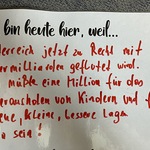 bin heute hier, weil...
erreich jetzt zu Recht mit
ermilliarden geflutet wird.
müßte eine Million für das
erausholen von Kindern und f
ene, kleine, bessere Lage
a sein!